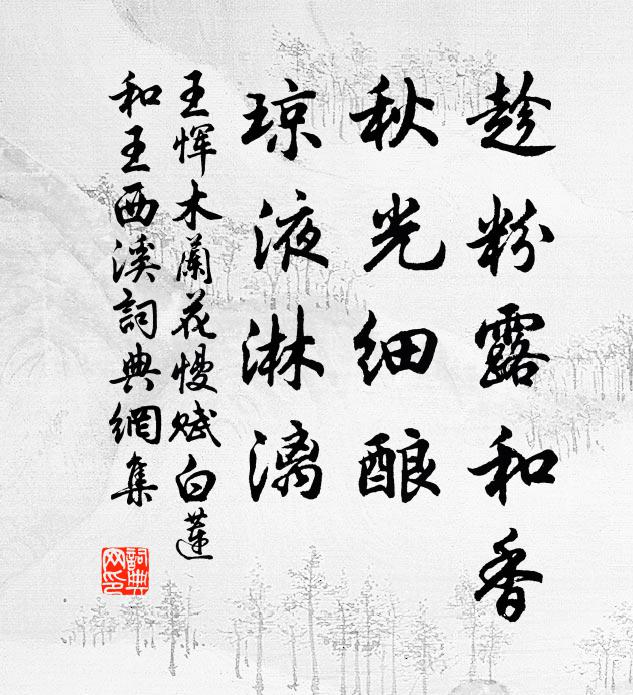 趁粉露和香
秋光细酿
琼液淋漓
王恽木蘭花慢赋白蓮
和王西溪詞典網集
詞典网印